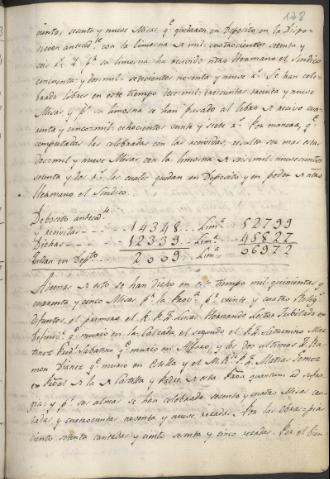 148
cientos, sesenta y nueve Misas, qe. quedaron en Deposito en la Dispo-
sicion antecedte. con la limosna de mil cuatrocientos setenta y
seis rs. pr. su limosna ha recivido ntro Hermano el Sindico
cincuenta y dos mil setecientos noventa y nueve rs. Se han cele-
brado libres en este tiempo doce mil trescientas treinta y nueve
Misas y pr. su limosna se han pasado al libro de recivo cua-
renta y cinco mil ochocientos veinte y siete rs. Por manera, qe.
computadas las celebradas con las recividas, resultan mas
dos mil y nueve Misas con la limosna de seis mil novecientos
setenta y dos rs. las cuales quedan en Deposito y en poder de ntro
Hermano el Sindico.
Deposito antecedte.
y recividas 14348 limª 52799
Dichas 12339 limª 45827
Quedan en Depto. 2009 limª 06972
Ademas de esto se han dicho en este tiempo mil quinientas y
cuarenta y cinco Misas pr. la Provª. pr. veinte y cuatro Religs.
difuntos, el primero el R. P. Fr. Lucas Hernando Lector Jubilado
Difinidor qe. murio en la Calzada, el segundo el R. P. Fr. Saturnino
Predr. Sabatino qe. murio en Alfaro, y los dos ultimos
qe. murio en y el M. R. P. Fr. Matias Gomez
de la de y Padre de esta Provª. quoad
y pr. sus almas se han celebrado sesenta y cuatro Misas can-
tadas, y cuatrocientas noventa y nueve rezadas. Por las obras-pias
ciento setenta cantadas y ciento sesenta y cinco rezadas. Por el bien